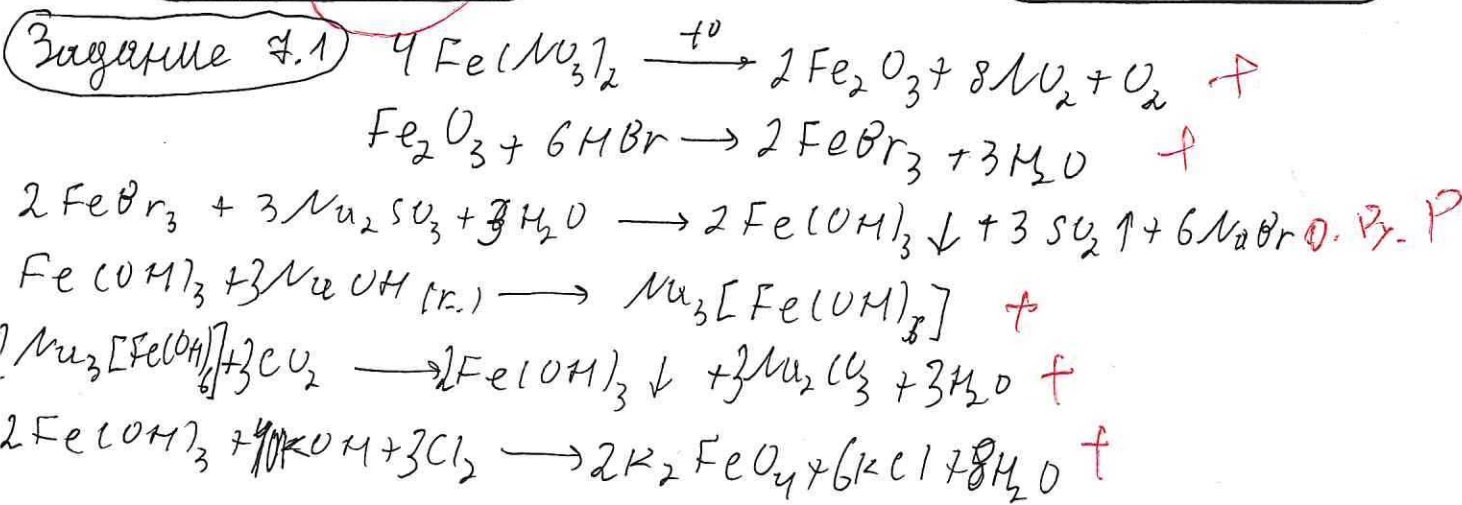 Задание 7.1 4Fe(NO₃)₂ —t°→ 2Fe₂O₃ + 8NO₂ + O₂ +
Fe₂O₃ + 6HBr → 2FeBr₃ + 3H₂O +
2FeBr₃ + 3Na₂SO₃ + 3H₂O → 2Fe(OH)₃↓ + 3SO₂↑ + 6NaBr
Fe(OH)₃ + 3NaOH (к.) → Na₃[Fe(OH)₆] +
2Na₃[Fe(OH)₆] + 3CO₂ → 2Fe(OH)₃↓ + 3Na₂CO₃ + 3H₂O +
2Fe(OH)₃ + 10KOH + 3Cl₂ → 2K₂FeO₄ + 6KCl + 8H₂O +